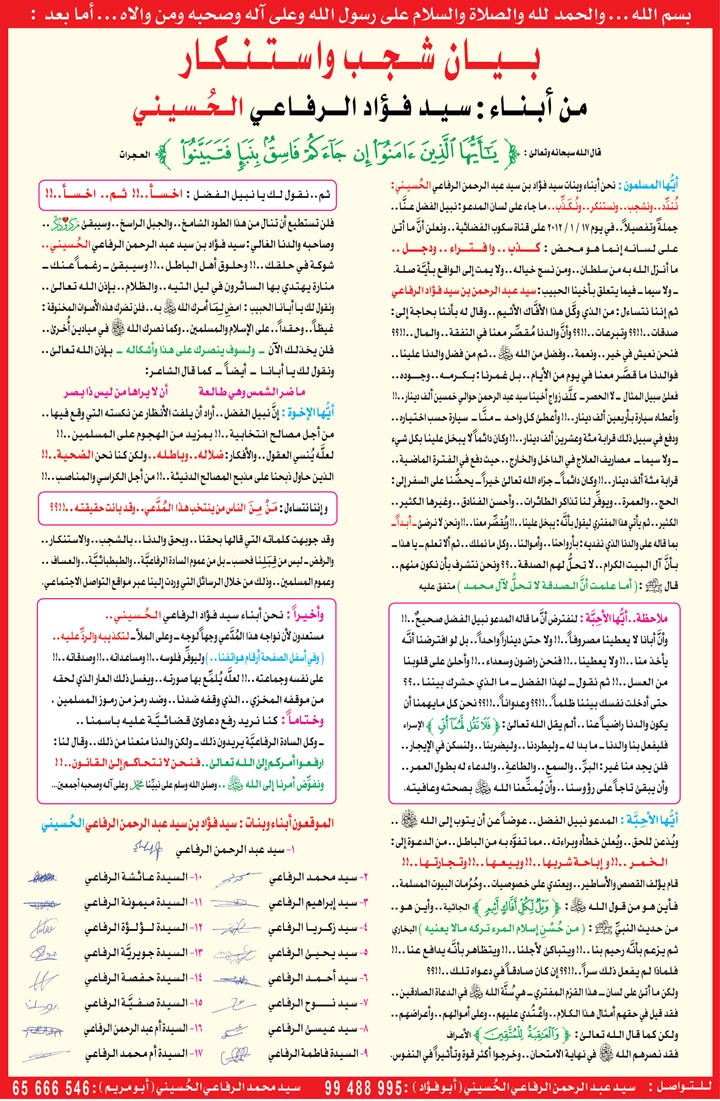 بسم الله... والحمد لله والصلاة والسلام على رسول الله وعلى آله وصحبه ومن والاه... أما بعد :
بيان شجب واستنكار
من أبناء : سيد فؤاد الرفاعي الحُسيني
قال الله سبحانه وتعالى : ﴿ يَٰٓأَيُّهَا ٱلَّذِينَ ءَامَنُوٓا۟ إِن جَآءَكُمْ فَاسِقٌۢ بِنَبَإٍ فَتَبَيَّنُوٓا۟ ﴾ الحجرات
أيُّها المسلمون : نحن أبناء وبنات سيد فؤاد بن سيد عبد الرحمن الرفاعي الحُسيني :
نُندِّد.. ونشجب.. ونستنكر.. ونُكذِّب.. ما جاء على لسان المدعو : نبيل الفضل عنَّا..
جملةً وتفصيلاً.. في يوم ١٧ / ١ / ٢٠١٢ على قناة سكوب الفضائية.. ونعلن أنَّ ما أتى
على لسانه إنما هو محض : كذب.. وافتراء.. ودجل..
ما أنزل الله به من سلطان.. ومن نسج خياله.. ولا يمت إلى الواقع بأيَّة صلة.
ـ ولا سيما ـ فيما يتعلق بأخينا الحبيب : سيد عبد الرحمن بن سيد فؤاد الرفاعي
ثم إننا نتساءل : من الذي وكَّل هذا الأفَّاك الأثيم.. وقال له بأننا بحاجة إلى :
صدقات..!!؟؟ وتبرعات..!!؟؟ وأنَّ والدنا مُقصِّر معنا في النفقة.. والمال..!!؟؟
فنحن نعيش في خير.. ونعمة.. وفضل من الله ﷻ.. ثم من فضل والدنا علينا..
فوالدنا ما قصَّر معنا في يوم من الأيام.. بل غمرنا : بكرمه.. وجوده..
فعلى سبيل المثال ـ لا الحصر ـ كلَّف زواج أخينا سيد عبد الرحمن حوالي خمسين ألف دينار..!!
وأعطاه سيارة بأربعين ألف دينار..!! وأعطى كل واحد ـ منَّا ـ سيارة حسب اختياره..
ودفع في سبيل ذلك قرابة مئة وعشرين ألف دينار..!! وكان دائماً لا يبخل علينا بكل شيء
ـ ولا سيما ـ مصاريف العلاج في الداخل والخارج.. حيث دفع في الفترة الماضية
قرابة مئة ألف دينار..!! وكان دائماً ـ جزاه الله تعالى خيراً ـ يحضُّنا على السفر إلى :
الحج.. والعمرة.. ويوفِّر لنا تذاكر الطائرات.. وأحسن الفنادق.. وغيرها الكثير..
الكثير.. ثم يأتي هذا المفتري ليقول بأنَّه : يبخل علينا..!! ويُقصِّر معنا..!! ونحن لا نرضى ـ أبداً ـ
بما قاله على والدنا الذي نفديه : بأرواحنا.. وأموالنا.. وكل ما نملك.. ثم ألا تعلم ـ يا هذا ـ
بأنَّ آل البيت الكرام.. لا تحلُّ لهم الصدقة..؟؟ ونحن نتشرف بأن نكون منهم..
قال ﷺ : ( أما علمت أنَّ الصدقة لا تحلُّ لآل محمد ) متفق عليه
ملاحظة.. أيُّها الأحبَّة : لنفترض أنَّ ما قاله المدعو نبيل الفضل صحيحٌ..!!
وأنَّ أبانا لا يعطينا مصروفاً..!! ولا حتى ديناراً واحداً.. بل لو افترضنا أنَّه
يأخذ منا..!! ولا يعطينا.. فنحن راضون وسعداء.. وأحلى على قلوبنا
من العسل..!! ثم نقول ـ لهذا الفضل ـ ما الذي حشرك بيننا..؟؟
حتى أدخلت نفسك بيننا ظلماً..؟؟ وعدواناً..؟؟ نحن كل ما يهمنا أن
يكون والدنا راضياً عنا.. ألم يقل الله تعالى : ﴿ فَلَا تَقُل لَّهُمَآ أُفٍّ ﴾ الإسراء
فليفعل بنا والدنا ـ ما بدا له ـ وليطردنا.. وليضربنا.. ولنسكن في الإيجار..
فلن يجد منا غير : البرِّ.. والسمع.. والطاعة.. والدعاء له بطول العمر..
وأن يبقى تاجاً على رؤوسنا.. وأن يُمتِّعنا الله ﷻ بصحته وعافيته.
أيُّها الأحبَّة : المدعو نبيل الفضل.. عوضاً عن أن يتوب إلى الله ﷻ..
ويُذعن للحق.. ويُعلن خطأه وبراءته.. مما تفوَّه به من الباطل.. من الدعوة إلى :
الخمر..!! وإباحة شربها..!! وبيعها..!! وتجارتها..!!
قام يؤلف القصص والأساطير.. ويعتدي على خصوصيات.. وحُرمات البيوت المسلمة..
فأين هو من قول الله ﷻ : ﴿ وَيْلٌ لِّكُلِّ أَفَّاكٍ أَثِيمٍ ﴾ الجاثية.. وأين هو..
من حديث النبيِّ ﷺ : ( من حُسْنِ إسلام المرء تركه مالا يعنيه ) البخاري
ثم يزعم بأنَّه رحيم بنا..!! ويتباكى لأجلنا..!! ويتظاهر بأنَّه يدافع عنا..!!
فلماذا لم يفعل ذلك سراً..!!؟؟ إن كان صادقاً في دعواه تلك..!!؟؟
ولكن ما أتى على لسان ـ هذا القزم المفتري ـ هي سُنَّة الله ﷻ في الدعاة الصادقين..
فقد قيل في حقهم أمثال هذا الكلام.. واعْتُدي عليهم.. وعلى أموالهم.. وأعراضهم..
ولكن كما قال الله تعالى : ﴿ وَٱلْعَٰقِبَةُ لِلْمُتَّقِينَ ﴾ الأعراف
فقد نصرهم الله ﷻ في نهاية الامتحان.. وخرجوا أكثر قوة وتأثيراً في النفوس.
ثم.. نقول لك يا نبيل الفضل : اخسأ..!! ثم.. اخسأ..!!
فلن تستطيع أن تنال من هذا الطود الشامخ.. والجبل الراسخ.. وسيبقى
وصاحبه والدنا الغالي : سيد فؤاد بن سيد عبد الرحمن الرفاعي الحُسيني..
شوكة في حلقك..!! وحلوق أهل الباطل..!! وسيبقى ـ رغماً عنك ـ
منارة يهتدي بها السائرون في ليل التيه.. والظلام.. بإذن الله تعالى..
ونقول لك يا أبانا الحبيب : امضِ لِمَا أمرك الله ﷻ به.. فلن تضرك هذه الأصوات المخنوقة :
غيظاً.. وحقداً.. على الإسلام والمسلمين.. وكما نصرك الله ﷻ في ميادين أُخرى..
فلن يخذلك الآن ـ ولسوف ينصرك على هذا وأشكاله ـ بإذن الله تعالى..
ونقول لك يا أبانا ـ أيضاً ـ كما قال الشاعر :
ما ضر الشمس وهي طالعة أن لا يراها من ليس ذا بصر
أيُّها الإخوة : إنَّ نبيل الفضل.. أراد أن يلفت الأنظار عن نكسته التي وقع فيها..
من أجل مصالح انتخابية..!! بمزيد من الهجوم على المسلمين..!!
لعلَّه يُنسي العقول.. والأفكار : ضلاله.. وباطله.. ولكن كنا نحن الضحية..!!
الذين حاول ذبحنا على مذبح المصالح الدنيئة..!! من أجل الكراسي والمناصب..!!
وإننا نتساءل : مَنْ مِنَ الناس من ينتخب هذا المُدَّعي.. وقد بانت حقيقته..!!؟؟
وقد جوبهت كلماته التي قالها بحقنا.. وبحق والدنا.. بالشجب.. والاستنكار..
والرفض ـ ليس من قِبَلِنا فحسب ـ بل من عموم السادة الرفاعيَّة.. والطبطبائيَّة.. والعساف..
وعموم المسلمين.. وذلك من خلال الرسائل التي وردت إلينا عبر مواقع التواصل الاجتماعي.
وأخيراً : نحن أبناء سيد فؤاد الرفاعي الحُسيني..
مستعدون لأن نواجه هذا المُدَّعي وجهاً لوجه ـ وعلى الملأ ـ لتكذيبه والردِّ عليه..
( وفي أسفل الصفحة أرقام هواتفنا.. ) وليوفِّر فلوسه..!! ومساعداته..!! وصدقاته..!!
على نفسه وجماعته..!! لعلَّه يُلمِّع بها صورته.. ويغسل ذلك العار الذي لحقه
من موقفه المخزي.. الذي وقفه ضدنا.. وضد رمز من رموز المسلمين.
وختاماً : كنا نريد رفع دعاوى قضائيَّة عليه باسمنا..
ـ وكل السادة الرفاعيَّة يريدون ذلك ـ ولكن والدنا منعنا من ذلك.. وقال لنا :
ارفعوا أمركم إلى الله تعالى.. فنحن لا نتحاكم إلى القانون..!!
ونفوِّض أمرنا إلى الله ﷻ.. وصلى الله وسلم على نبيِّنا محمد وعلى آله وصحبه أجمعين..
الموقعون أبناء وبنات : سيد فؤاد بن سيد عبد الرحمن الرفاعي الحُسيني
١- سيد عبد الرحمن الرفاعي
٢- سيد محمد الرفاعي
٣- سيد إبراهيم الرفاعي
٤- سيد زكريا الرفاعي
٥- سيد يحيى الرفاعي
٦- سيد أحمد الرفاعي
٧- سيد نوح الرفاعي
٨- سيد عيسى الرفاعي
٩- السيدة فاطمة الرفاعي
١٠- السيدة عائشة الرفاعي
١١- السيدة ميمونة الرفاعي
١٢- السيدة لؤلؤة الرفاعي
١٣- السيدة جويرية الرفاعي
١٤- السيدة حفصة الرفاعي
١٥- السيدة صفيَّة الرفاعي
١٦- السيدة أم عبد الرحمن الرفاعي
١٧- السيدة أم محمد الرفاعي
للتواصل : سيد عبد الرحمن الرفاعي الحُسيني ( أبو فؤاد ) : 99 488 995 سيد محمد الرفاعي الحُسيني ( أبو مريم ) : 65 666 546